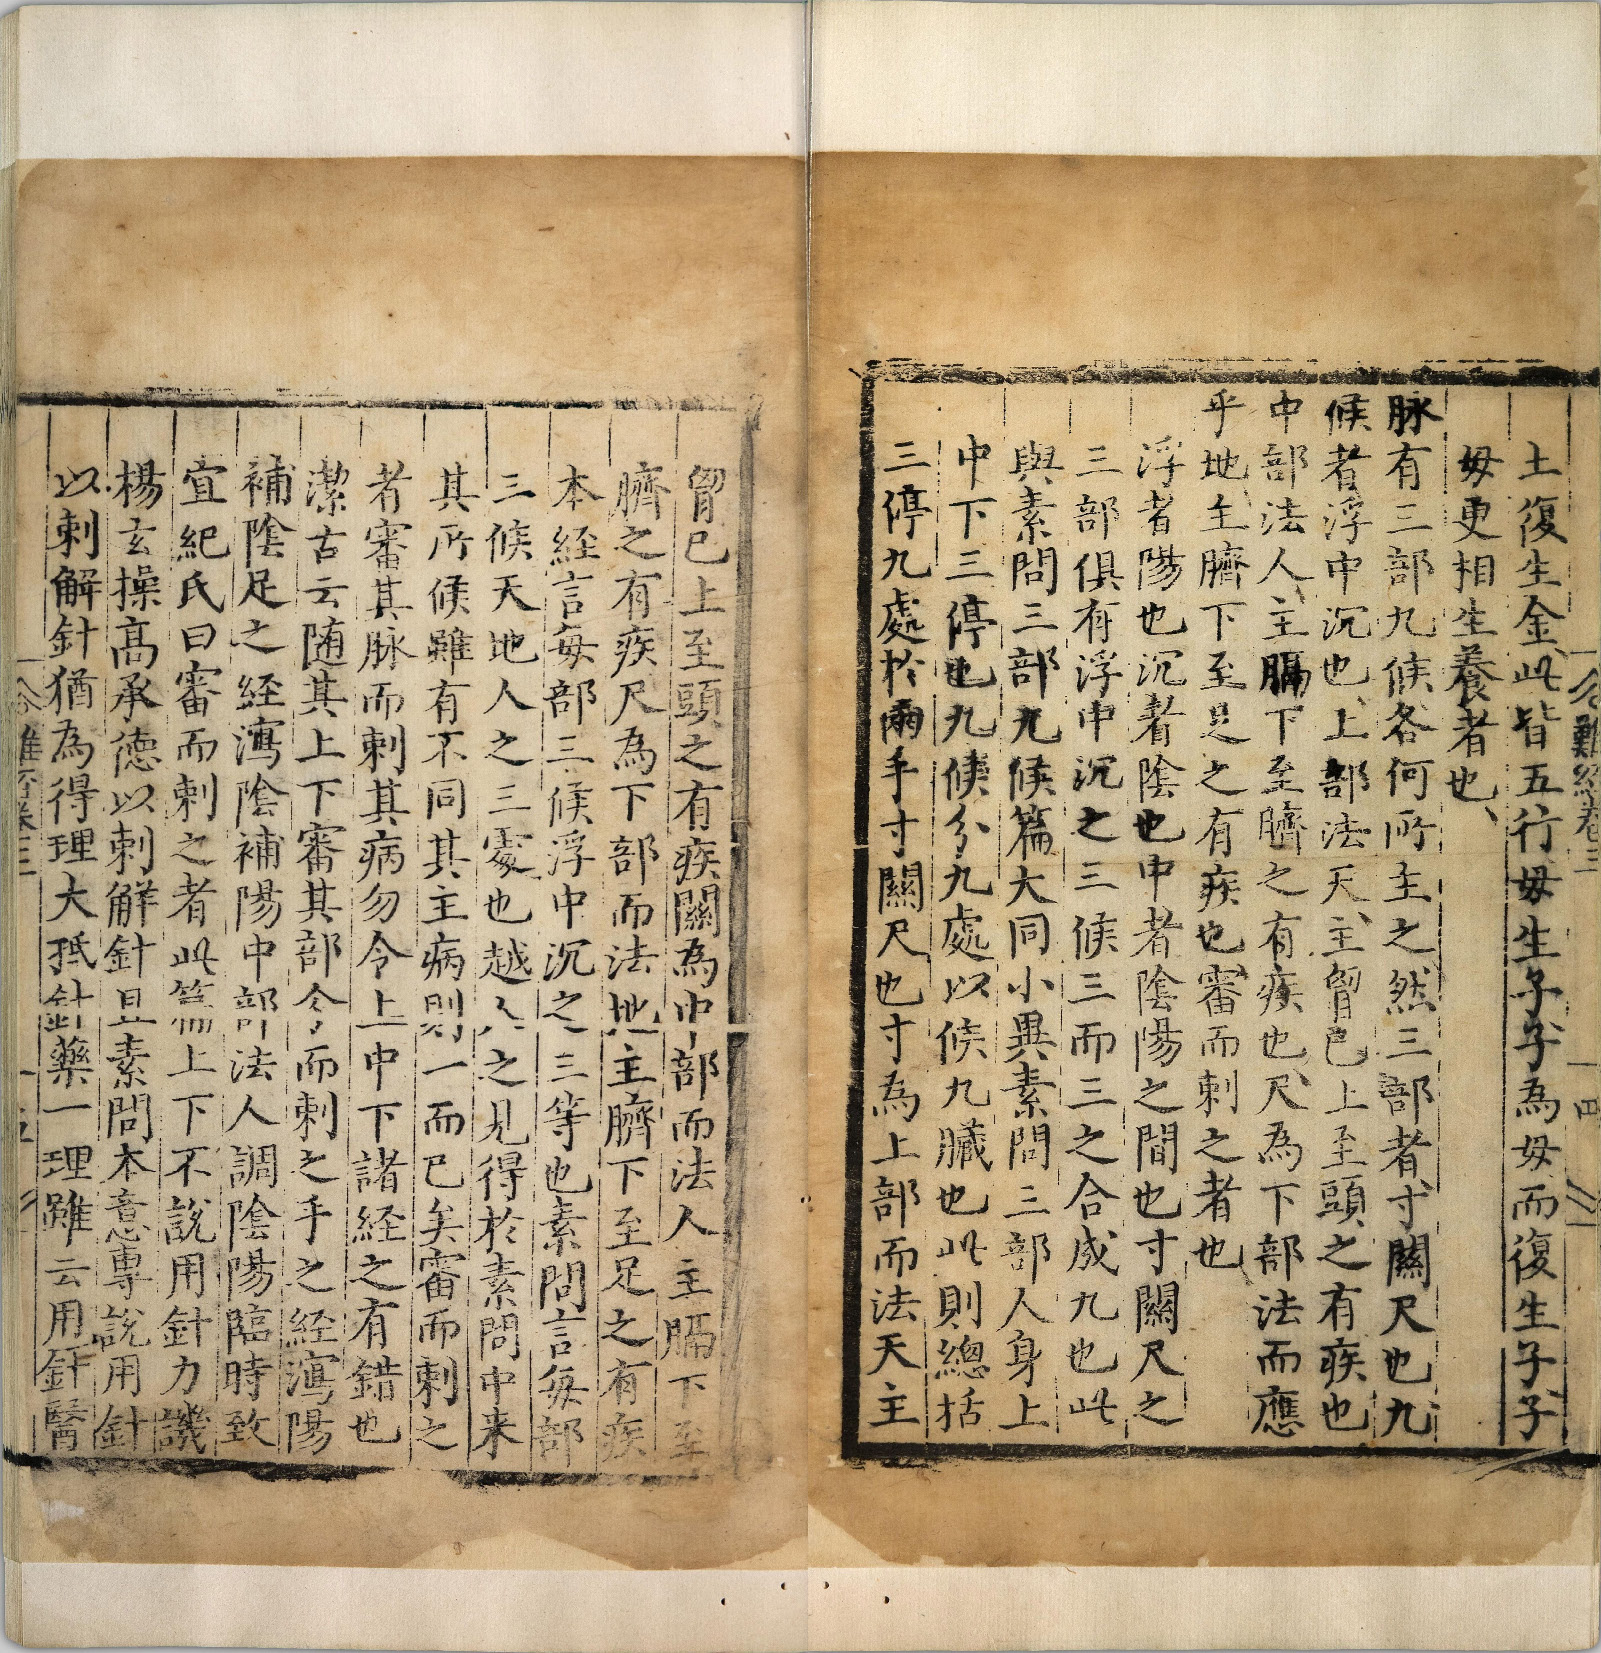 難經卷三
四
土復生金此皆五行毋生子子為毋而復生子子
毋更相生養者也
脉有三部九候各何所主之然三部者寸關尺也九
候者浮中沉也上部法天主胷已上至頭之有疾也
中部法人主膈下至臍之有疾也尺為下部法而應
乎地主臍下至足之有疾也審而刺之者也
浮者陽也沉者陰也中者陰陽之間也寸關尺之
三部俱有浮中沉之三候三而三之合成九也此
與素問三部九候篇大同小異素問三部人身上
中下三停也九候分九處以候九臓也此則總括
三停九處於兩手寸關尺也寸為上部而法天主
胷已上至頭之有疾關為中部而法人主膈下至
臍之有疾尺為下部而法地主臍下至足之有疾
本経言每部三候浮中沉之三等也素問言每部
三候天地人之三處也越人之見得於素問中来
其所候雖有不同其主病則一而已矣審而刺之
者審其脉而刺其病勿令上中下諸経之有錯也
潔古云随其上下審其部令而刺之手之経瀉陽
補陰足之経瀉陰補陽中部法人調陰陽臨時致
宜紀氏曰審而刺之者此篇上下不說用針力譏
楊玄操髙承德以刺解針且素問本意專說用針
以刺解針猶為得理大抵針藥一理雖云用針醫